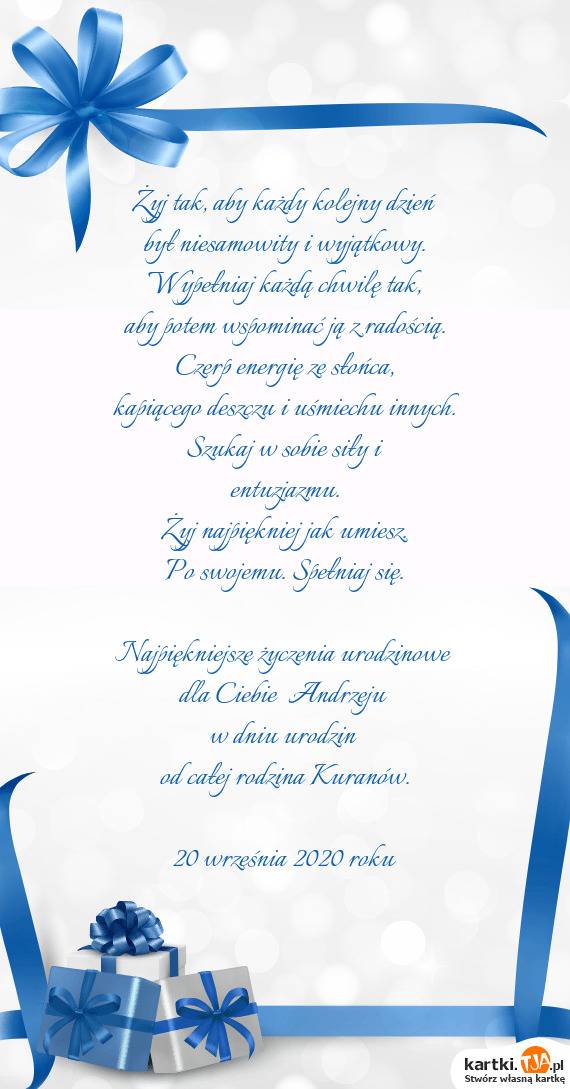 Żyj tak, aby każdy kolejny dzień
był niesamowity i wyjątkowy.
Wypełniaj każdą chwilę tak,
aby potem wspominać ją z radością.
Czerp energię ze słońca,
kapiącego deszczu i uśmiechu innych.
Szukaj w sobie siły i
entuzjazmu.
Żyj najpiękniej jak umiesz.
Po swojemu. Spełniaj się.
Najpiękniejsze życzenia urodzinowe
dla Ciebie Andrzeju
w dniu urodzin
od całej rodzina Kuranów.
20 września 2020 roku
kartki.TJA.pl
Stwórz własną kartkę